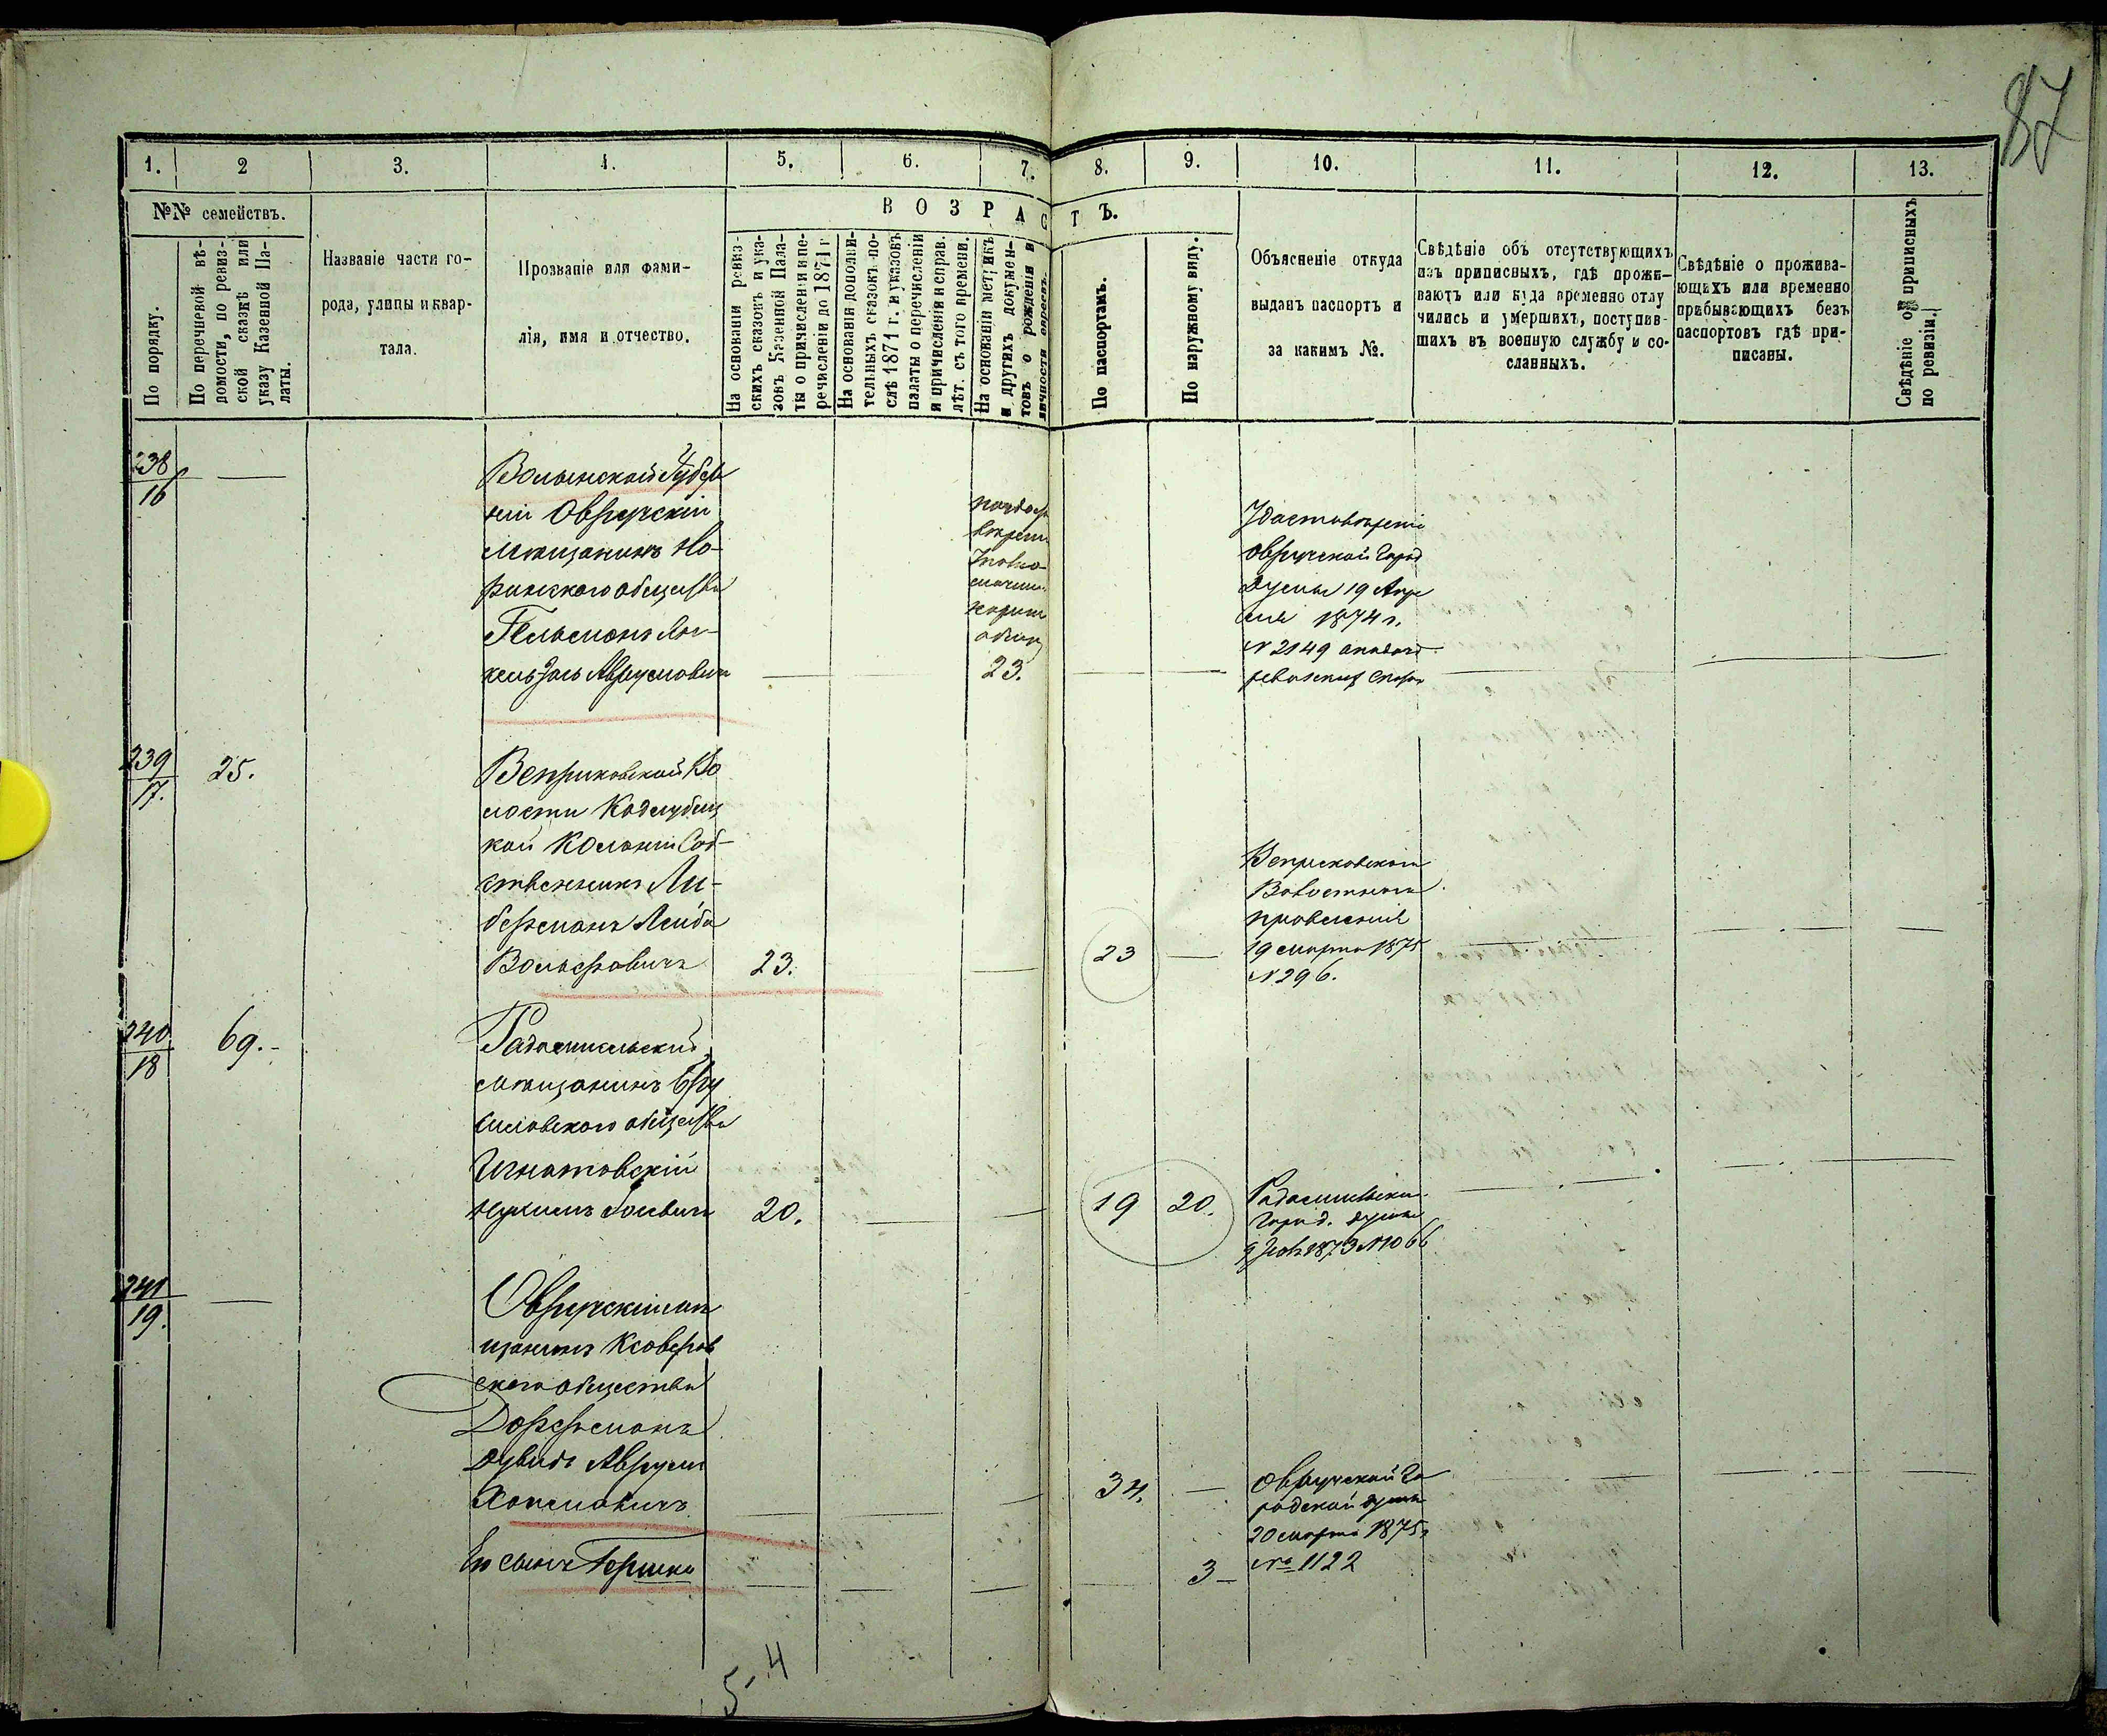 87
1. 2 3. 4. 5. 6. 7. 8. 9. 10. 11. 12. 13.
№№ семействъ.
По порядку.
По перечневой вѣ-
домости, по ревиз-
ской сказкѣ или
указу Казенной Па-
латы.
Названіе части го-
рода, улицы и квар-
тала.
Прозваніе или фами-
лія, имя и отчество.
ВОЗРАСТЪ.
На основаніи ревиз-
скихъ сказокъ и ука-
зовъ Казенной Пала-
ты о причисленіи и пе-
речисленіи до 1871 г
На основаніи дополни-
тельныхъ сказокъ по-
слѣ 1871 г. и указовъ
палаты о перечисленіи
и причисленіи и справ.
лѣт. съ того времени.
На основаніи метрикъ
и другихъ докумен-
товъ о рожденіи и
личности евреевъ.
По паспортамъ.
По наружному виду.
Объясненіе откуда
выданъ паспортъ и
за какимъ №.
Свѣдѣніе объ отсутствующихъ
изъ приписныхъ, гдѣ прожи-
ваютъ или куда временно отлу
чились и умершихъ, поступив-
шихъ въ военную службу и со-
сланныхъ.
Свѣдѣніе о прожива-
ющихъ или временно
прибывающихъ безъ
паспортовъ гдѣ при-
писаны.
Свѣдѣніе о приписныхъ
по ревизіи.
238
16
Волынской Губер
ніи Овручскій
мѣщанинъ Но-
ринского общества
Гельманъ Ян-
кель Аврумовичъ
23.
Удостовѣреніе
Овручской Город
Думы 19 Апре
ля 1874 г.
N 2149
239
17.
25.
Веприковской Во
лости Кадлубиц
кой Колоніи Соб-
ственникъ Ли-
берманъ Лейба
Вольфовичъ
23.
23
Веприковского
Волостного
правленія
19 марта 1875
N 296.
240
18
69.-
Радомысльскій
мѣщанинъ Бру
силовского общества
Игнатовскій
Нухимъ
20.
19
20.
Радомысльск.
Город. думы
9 1873 N 1066
241
19.
Овручскій мѣ
щанинъ Ксаверов
ского общества
Дорферманъ
Дувидъ Аврумъ
Хаимовичъ
34.
Овручской Го
родской думы
20 марта 1875 г
№ 1122
Его сынъ Гершко
3
5-4